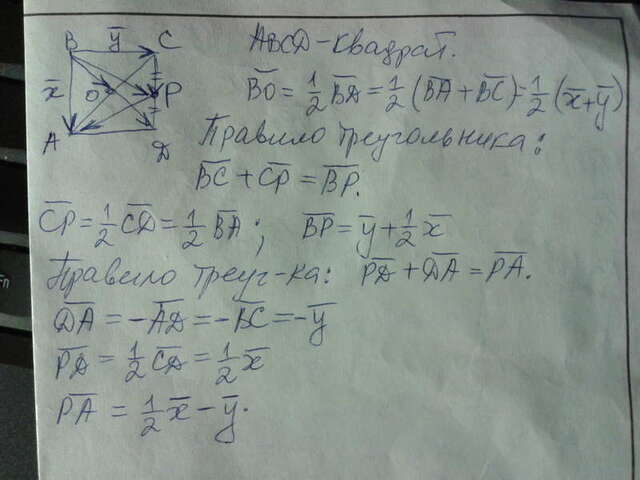 B ȳ C
x̄ O P
A D
ABCD-квадрат.
B̅O̅ = 1/2 B̅D̅ = 1/2 (B̅A̅ + B̅C̅) = 1/2 (x̄ + ȳ)
Правило треугольника:
B̅C̅ + C̅P̅ = B̅P̅.
C̅P̅ = 1/2 C̅D̅ = 1/2 B̅A̅; B̅P̅ = ȳ + 1/2 x̄
Правило треуг-ка: P̅D̅ + D̅A̅ = P̅A̅.
D̅A̅ = -A̅D̅ = -B̅C̅ = -ȳ
P̅D̅ = 1/2 C̅D̅ = 1/2 x̄
P̅A̅ = 1/2 x̄ - ȳ.